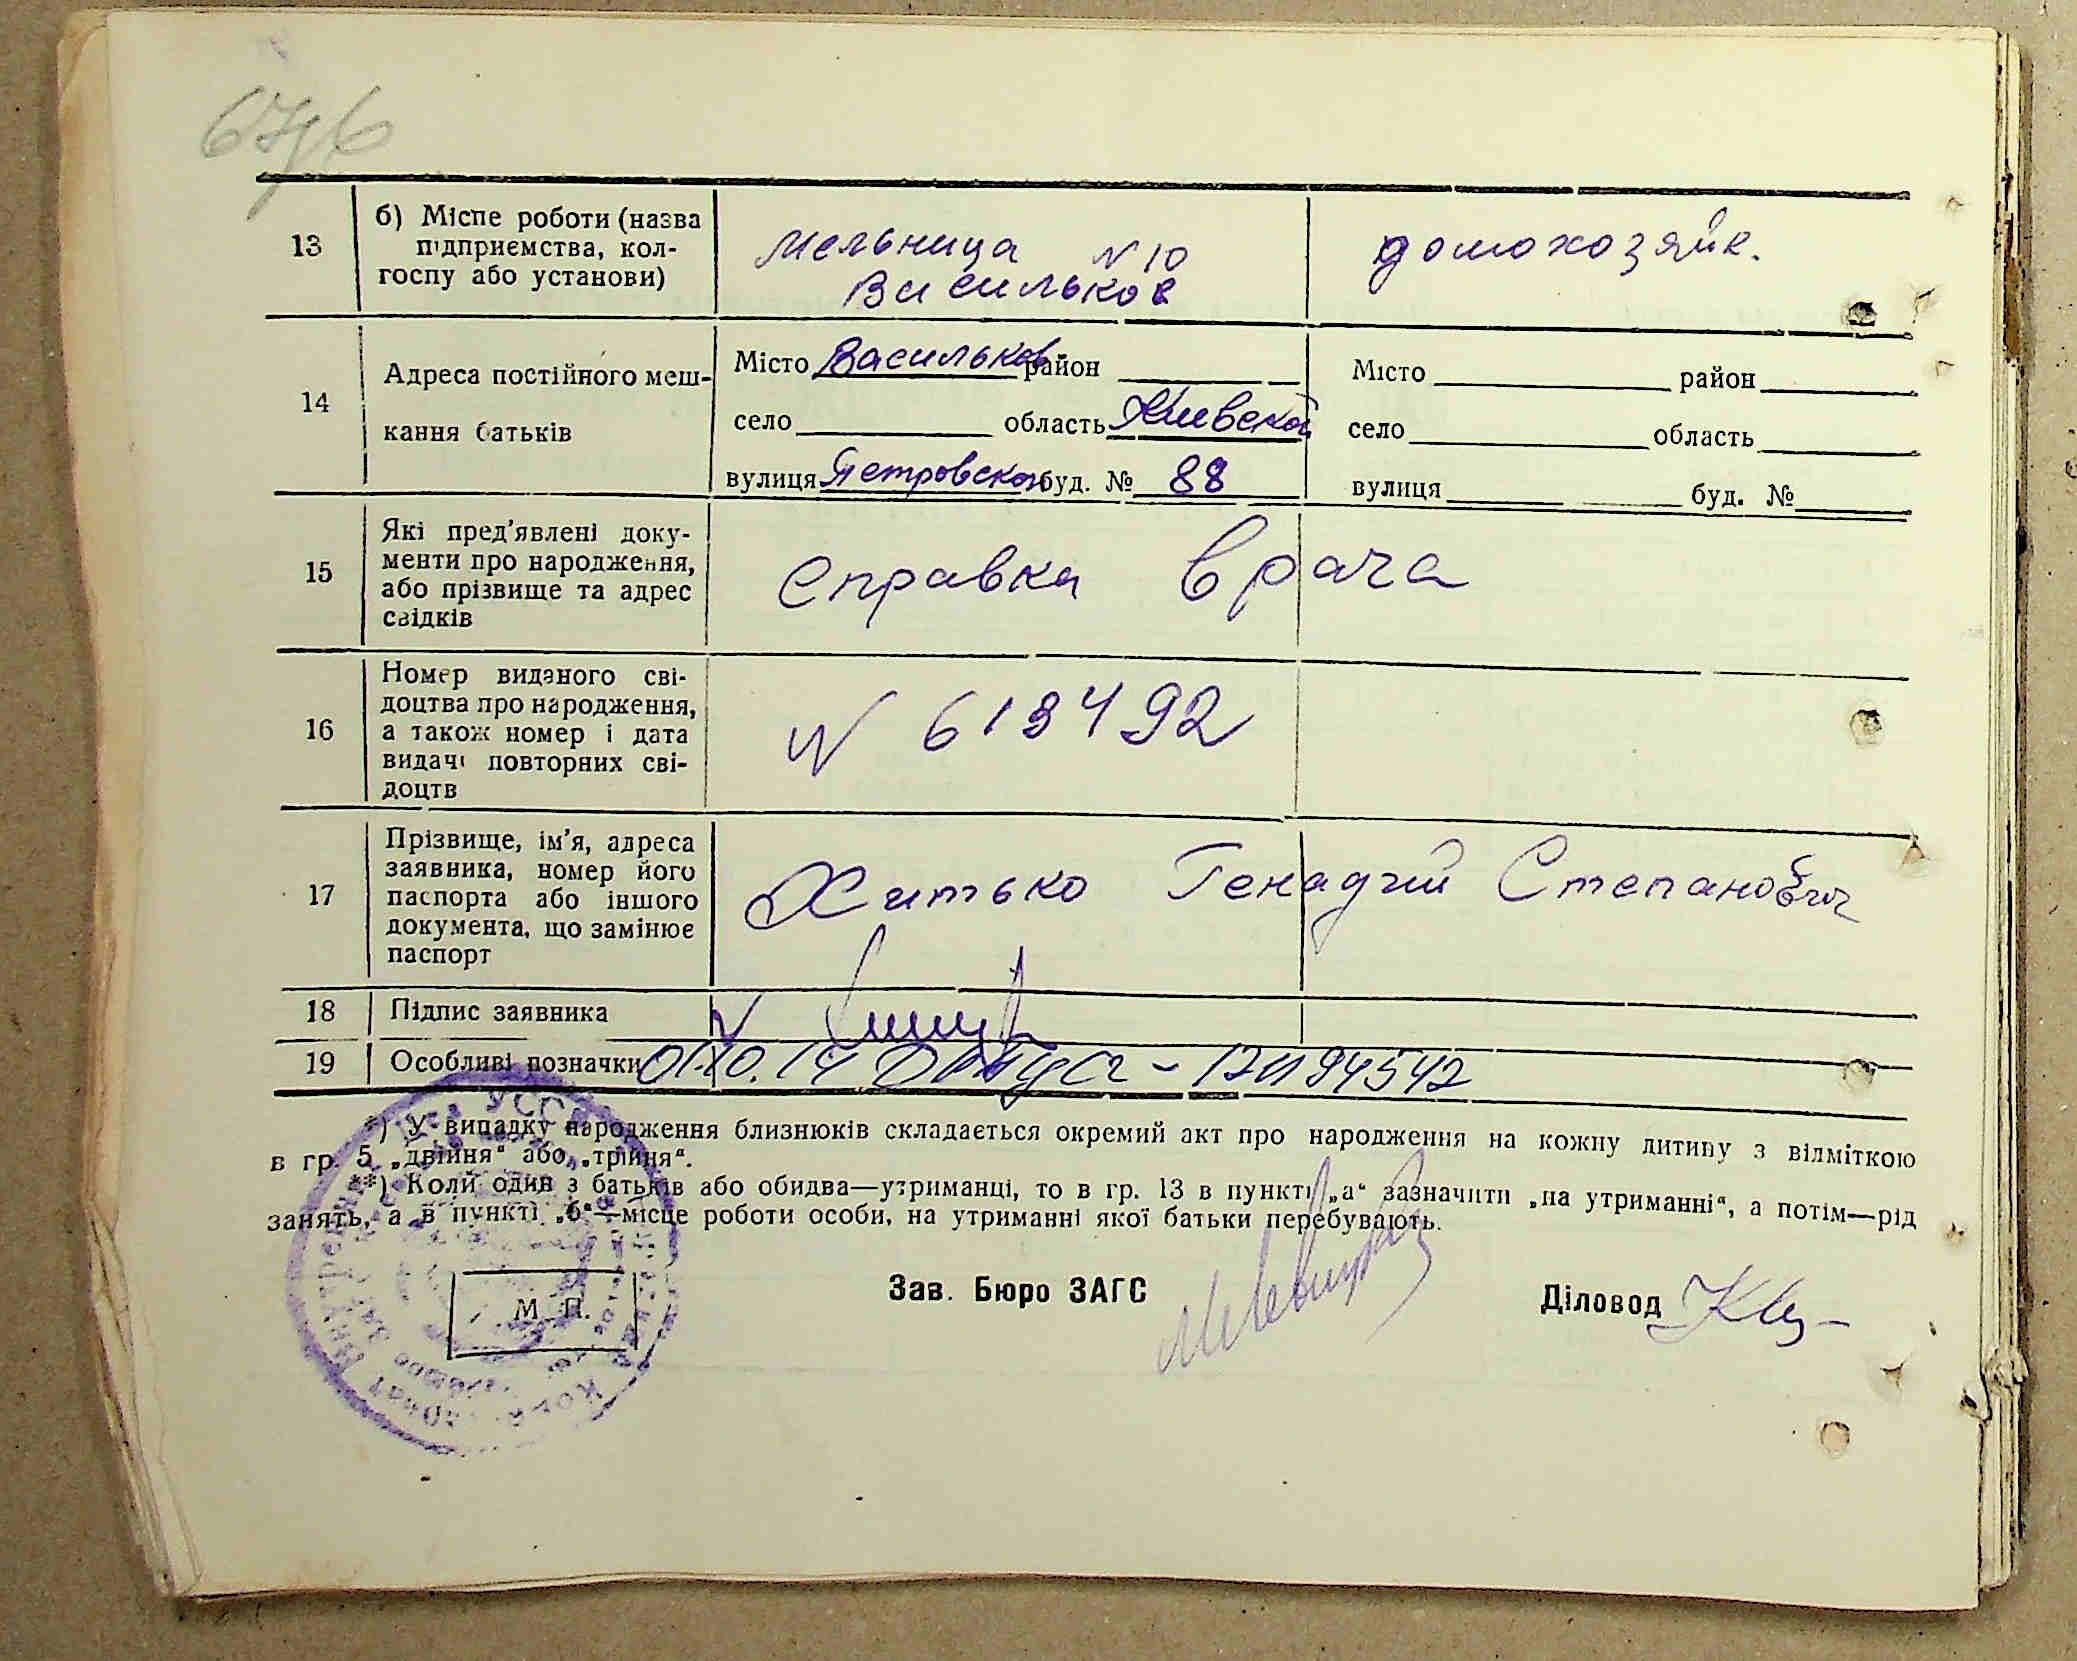 13
б) Місце роботи (назва
підприємства, кол-
госпу або установи)
Мельница N 10
Васильков
домохозяйк.
14
Адреса постійного меш-
кання батьків
Місто Васильков район
село область Киевской
вулиця Петровского буд. № 88
Місто район
село область
вулиця буд. №
15
Які пред'явлені доку-
менти про народження,
або прізвище та адрес
свідків
Справка врача
16
Номер виданого сві-
доцтва про народження,
а також номер і дата
видачі повторних сві-
доцтв
N 613492
17
Прізвище, ім'я, адреса
заявника, номер його
паспорта або іншого
документа, що замінює
паспорт
Хитько Генадий Степанович
18
Підпис заявника
19
Особливі позначки
*) У випадку народження близнюків складається окремий акт про народження на кожну дитину з відміткою
в гр. 5 „двійня“ або „трійня“.
**) Коли один з батьків або обидва—утриманці, то в гр. 13 в пункті „а“ зазначити „на утриманні“, а потім—рід
занять, а в пункті „б“—місце роботи особи, на утриманні якої батьки перебувають.
М. П.
Зав. Бюро ЗАГС
Діловод